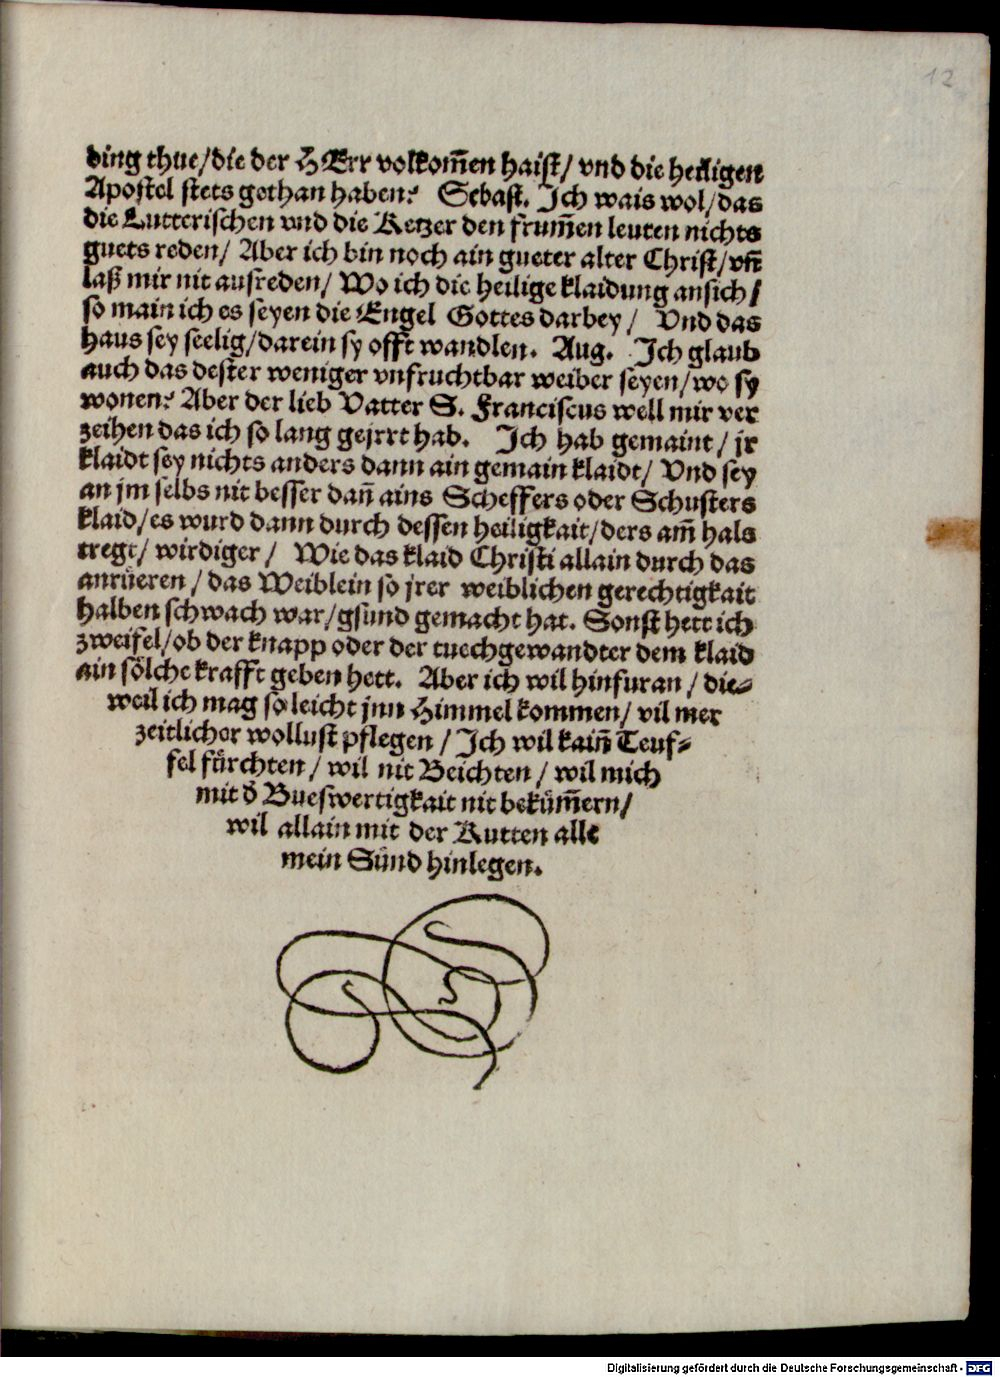 12
ding thue/die der HErr volkom̃en haist/ vnd die heiligen
Apostel stets gethan haben? Sebast. Ich wais wol/das
die Lutterischen vnd die Ketzer den frum̃en leuten nichts
guets reden/ Aber ich bin noch ain gueter alter Christ/vñ
laß mir nit ausreden/ Wo ich die heilige klaidung ansich/
so main ich es seyen die Engel Gottes darbey/ Vnd das
haus sey seelig/darein sy offt wandlen. Aug. Ich glaub
auch das dester weniger vnfruchtbar weiber seyen/wo sy
wonen? Aber der lieb Vatter S. Franciscus well mir ver
zeihen das ich so lang gejrrt hab. Ich hab gemaint/ jr
klaidt sey nichts anders dann ain gemain klaidt/ Vnd sey
an jm selbs nit besser dañ ains Scheffers oder Schusters
klaid/es wurd dann durch dessen heiligkait/ders am̃ hals
tregt/ wirdiger/ Wie das klaid Christi allain durch das
anrüeren/das Weiblein so jrer weiblichen gerechtigkait
halben schwach war/gsund gemacht hat. Sonst hett ich
zweifel/ob der knapp oder der tuechgewandter dem klaid
ain sölche krafft geben hett. Aber ich wil hinfuran/ die⸗
weil ich mag so leicht jnn Himmel kommen/ vil mer
zeitlicher wollust pflegen/ Ich wil kaiñ Teuf⸗
fel fürchten/ wil nit Beichten/ wil mich
mit d̕ Bueswertigkait nit beküm̃ern/
wil allain mit der Kutten alle
mein Sünd hinlegen.
Digitalisierung gefördert durch die Deutsche Forschungsgemeinschaft - DFG